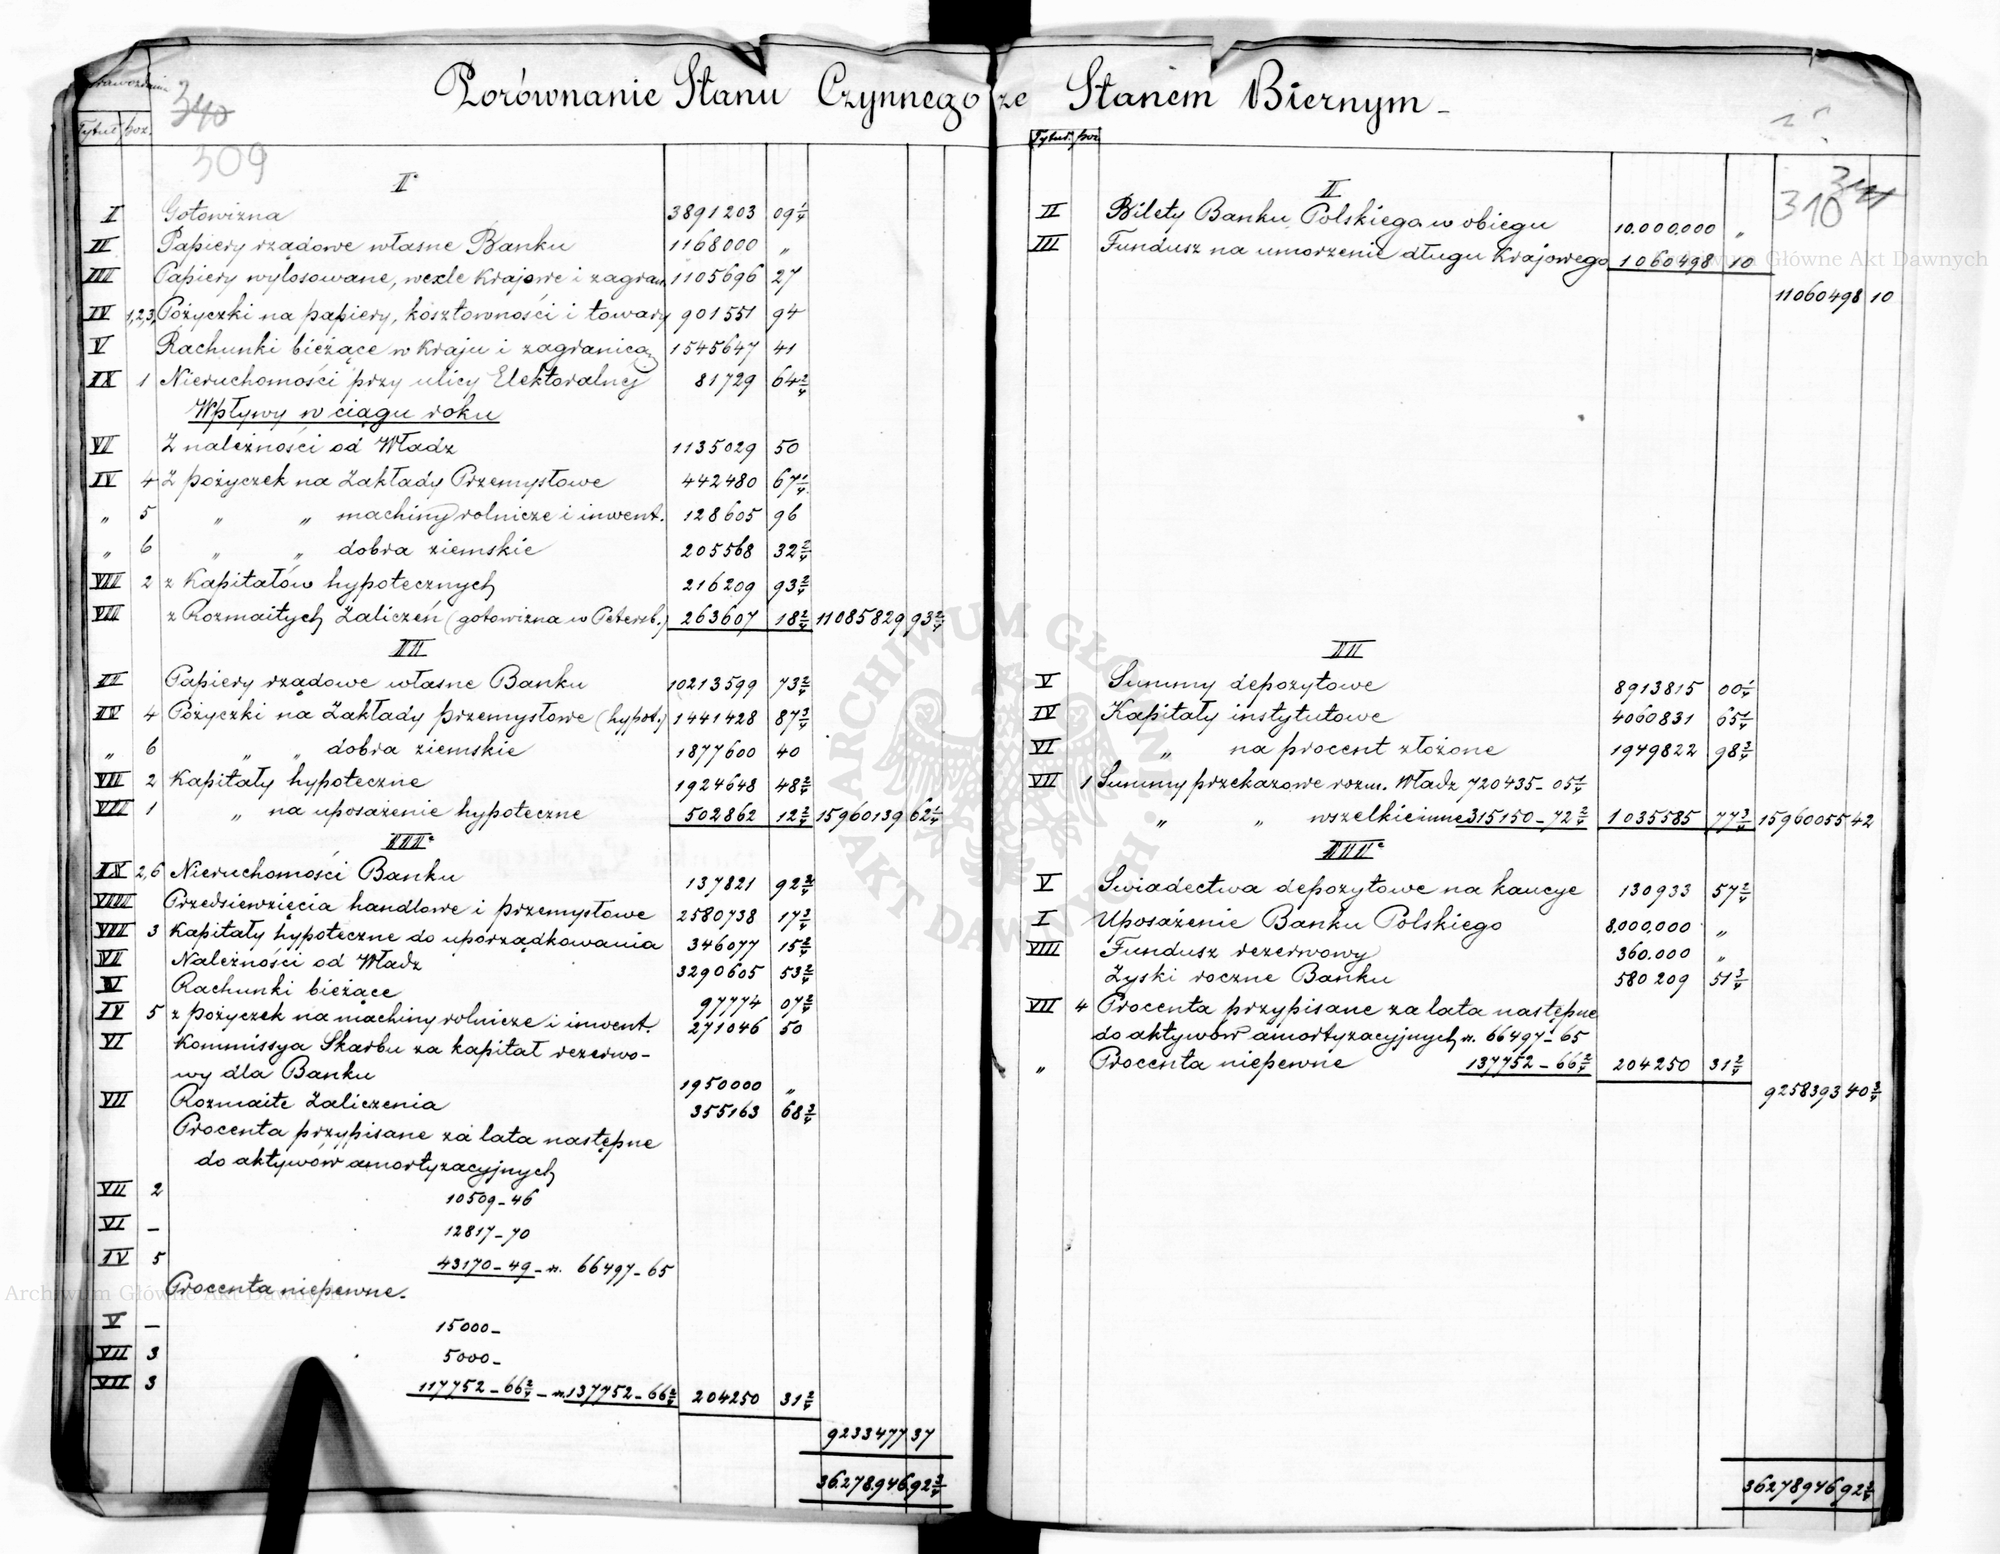 Porównanie Stanu Czynnego ze Stanem Biernym
Tytuł poz.
340
309
I
I Gotowizna 3891203 09 1/4
II Papiery rządowe własne Banku 1168000 „
III Papiery wylosowane, wexle krajowe i zagran. 1105696 27
IV 1,2,3, Pożyczki na papiery, kosztowności i towary 901551 94
V Rachunki bieżące w kraju i zagranicą 1545647 41
IX 1 Nieruchomości przy ulicy Elektoralnej 81729 64 2/4
Wpływy w ciągu roku
VI Z należności od Władz 1135029 50
IV 4 Z pożyczek na Zakłady Przemysłowe 442480 67 1/4
„ 5 „ „ machiny rolnicze i inwent. 128605 96
„ 6 „ „ dobra ziemskie 205568 32 2/4
VII 2 z Kapitałów hypotecznych 216209 93 2/4
VII z Rozmaitych Zaliczeń (gotowizna w Petersb.) 263607 18 2/4 11085829 93 2/4
II
II Papiery rządowe własne Banku 10213599 73 2/4
IV 4 Pożyczki na Zakłady przemysłowe (hypot.) 1441428 87 3/4
„ 6 „ „ dobra ziemskie 1877600 40
VII 2 Kapitały hypoteczne 1924648 48 2/4
VII 1 „ na uposażenie hypoteczne 502862 12 2/4 15960139 62 1/4
III
IX 2,6 Nieruchomości Banku 137821 92 3/4
VIII Przedsięwzięcia handlowe i przemysłowe 2580738 17 3/4
VII 3 Kapitały hypoteczne do uporządkowania 346077 15 2/4
VI Należności od Władz 3290605 53 2/4
V Rachunki bieżące 97774 07 2/4
IV 5 z pożyczek na machiny rolnicze i inwent. 271046 50
VI Kommissya Skarbu za kapitał rezerwo-
wy dla Banku 1950000 „
VII Rozmaite Zaliczenia 355163 68 3/4
Procenta przypisane za lata następne
do aktywów amortyzacyjnych
VII 2 10509-46
VI – 12817-70
IV 5 43170-49 – rs. 66497-65
Procenta niepewne.
V – 15000-
VII 3 5000-
VII 3 117752-66 2/4 – rs. 137752-66 2/4 204250 31 2/4
9233477 37
36.278.946 92 3/4
Tytuł poz.
310
II
II Bilety Banku Polskiego w obiegu 10.000.000 „
III Fundusz na umorzenie długu Krajowego 1060498 10
11060498 10
II
V Summy depozytowe 8913815 00 1/4
IV Kapitały instytutowe 4060831 65 1/4
VI „ na procent złożone 1949822 98 3/4
VII 1 Summy przekazowe rozm. Władz 720435-05 1/4
„ „ wszelkie inne 315150-72 2/4 1035585 77 3/4 15960055 42
III
V Świadectwa depozytowe na kaucye 130933 57 2/4
I Uposażenie Banku Polskiego 8.000,000 „
VIII Fundusz rezerwowy 360.000 „
Zyski roczne Banku 580209 51 3/4
VII 4 Procenta przypisane za lata następne
do aktywów amortyzacyjnych rs. 66497-65
„ Procenta niepewne 137752-66 2/4 204250 31 2/4
9258393 40 3/4
36278946 92 3/4
Archiwum Główne Akt Dawnych
Archiwum Główne Akt Dawnych
ARCHIWUM GŁÓWNE AKT DAWNYCH